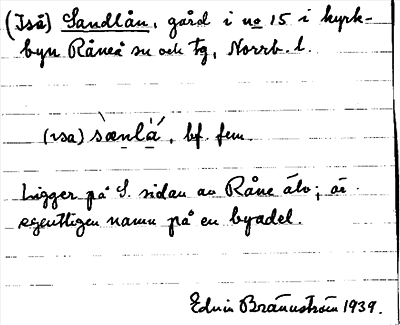 (Iså) Sandlån, gård i no 15 i kyrk-
byn Råneå sn och tg, Norrb. l.
(ɪsa) sàenlá, bf. fem.
Ligger på S. sidan av Råne älv; är
egentligen namn på en byadel.
Edvin Brännström 1939.